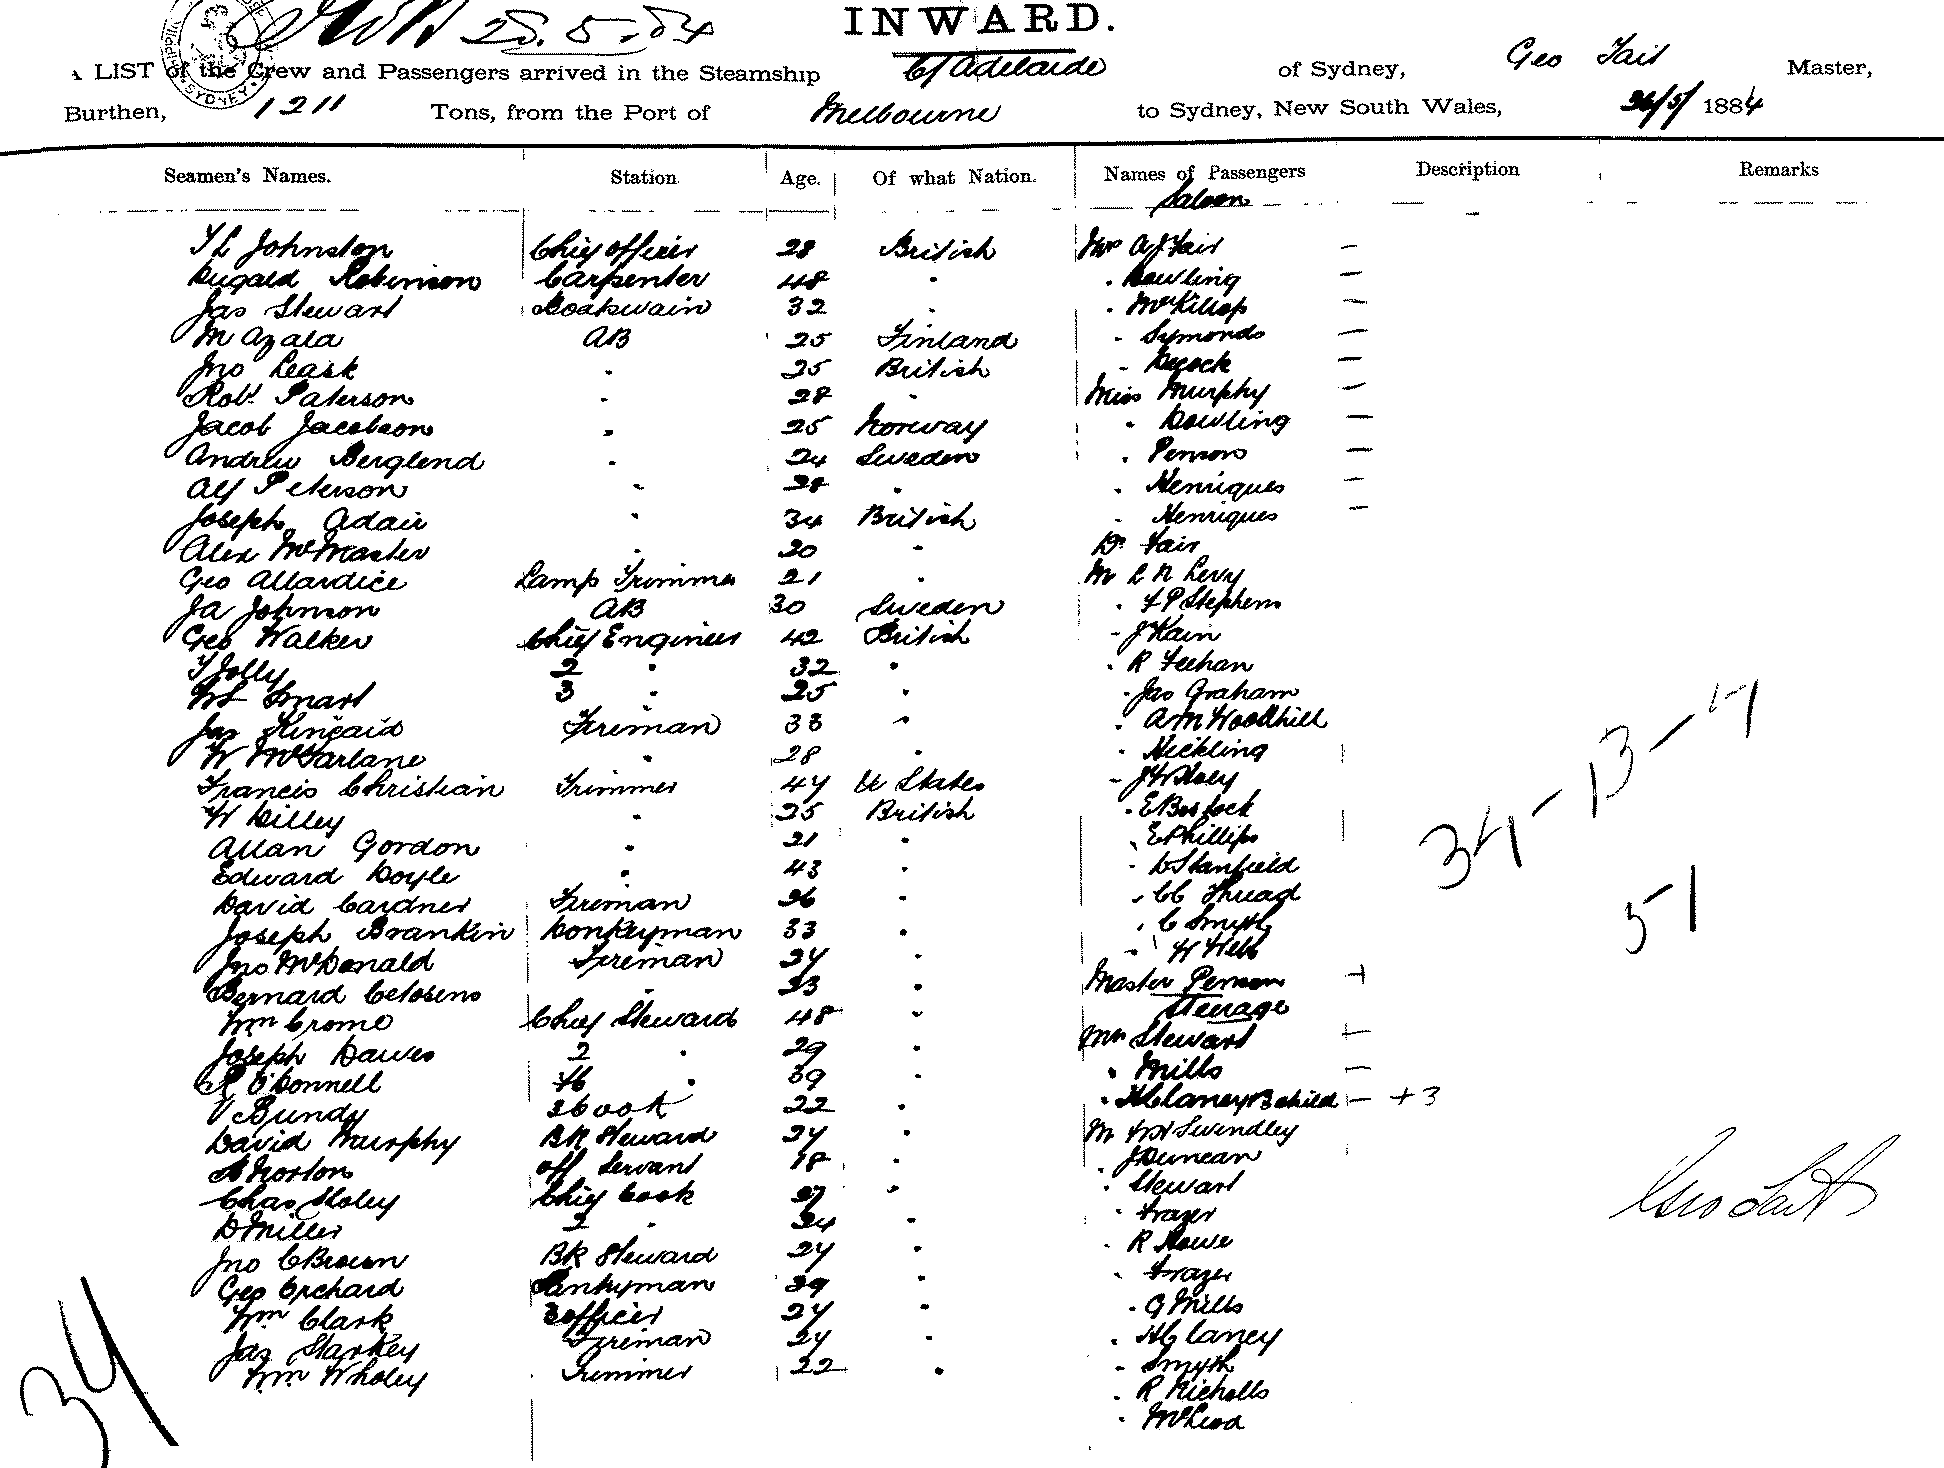 25.5.84
INWARD.
A LIST of the Crew and Passengers arrived in the Steamship C/Adelaide of Sydney, Geo Tait Master,
Burthen, 1211 Tons, from the Port of Melbourne to Sydney, New South Wales, 26/5/ 1884
Seamen's Names. Station Age. Of what Nation. Names of Passengers Description Remarks
Saloon
Johnston Chief Officer 28 British Mrs A J Fair —
Dugald Robinson Carpenter 48 " " Dowling —
Jas Stewart Boatswain 32 " " McKillop —
M Azala AB 25 Finland " Symonds —
Jno Leask " 25 British " —
Robt Paterson " 28 " Miss Murphy —
Jacob Jacobson " 25 Norway " Dowling —
Andrew Berglend " 24 Sweden " Penson —
Alf Peterson " 28 " " Henriques —
Joseph Adair " 34 British " Henriques —
Alex McMaster " 20 " Dr Fair
Geo Allardice Lamp Trimmer 21 " Mr L N Levy
Ja Johnson AB 30 Sweden " F P Stephens
Geo Walker Chief Engineer 42 British " J Kain
T Jolly 2 " 32 " " R Feehan
Wm Smart 3 " 25 " " Jas Graham
Jas Kincaid Fireman 33 " " A M Woodhill
W McFarlane " 28 " " Hickling
Francis Christian Trimmer 47 U States "
W Dilley " 25 British " E Bostock
Allan Gordon " 21 " " E Phillips
Edward Doyle " 43 " " D Stanfield
David Gardner Fireman 26 " " C C Thread
Joseph Brankin Donkeyman 33 " " C Smyth
Jno McDonald Fireman 24 " " W Webb
Bernard " 23 " Master Penson +
Steerage
Wm Crome Chief Steward 48 " Mrs Stewart —
Joseph Dawes 2 " 29 " " Mills —
O'Donnell " 39 " " H Claney & 3 child — +3
V Bundy 3 Cook 22 " Mr Swindley
David Murphy BR Steward 24 " " J Duncan
A Norton Off Servant 18 " " Stewart
Chas Chief Cook 27 " " Frazer
D Miller 2 " 24 " " R Howe
Jno C Brown BR Steward 24 " " Frazer
Geo Orchard Pantryman 29 " " G Mills
Wm Clark 3 Officer 24 " " H Claney
Jas Starkey Fireman 24 " " Smyth
Wm Wholey Trimmer 22 " " R Nicholls
" McLeod
34 – 13 – 4
51
Geo Tait
34